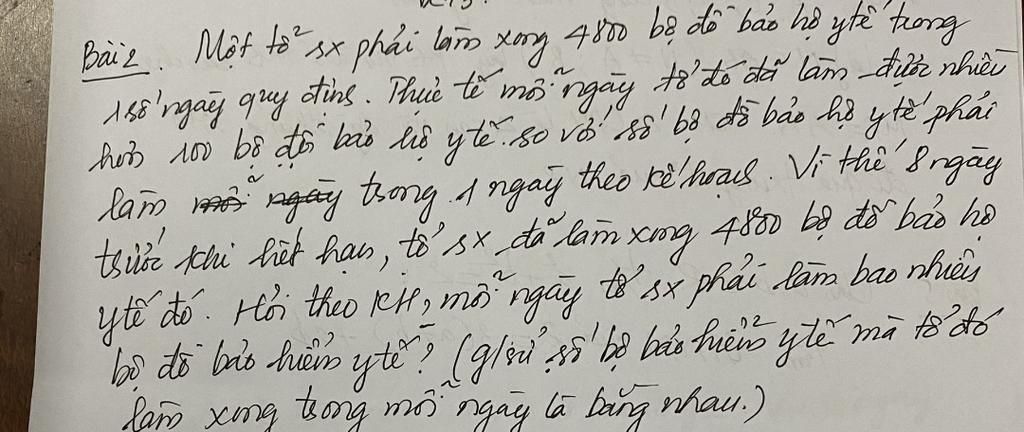 Bài 2. Một tổ sx phải làm xong 4800 bộ đồ bảo hộ y tế trong
1 số ngày quy định. Thực tế mỗi ngày tổ đó đã làm được nhiều
hơn 100 bộ đồ bảo hộ y tế so với số bộ đồ bảo hộ y tế phải
làm mỗi ngày trong 1 ngày theo kế hoạch. Vì thế 8 ngày
trước khi hết hạn, tổ sx đã làm xong 4800 bộ đồ bảo hộ
y tế đó. Hỏi theo KH, mỗi ngày tổ sx phải làm bao nhiêu
bộ đồ bảo hiểm y tế? (g/sử số bộ bảo hiểm y tế mà tổ đó
làm xong trong mỗi ngày là bằng nhau.)